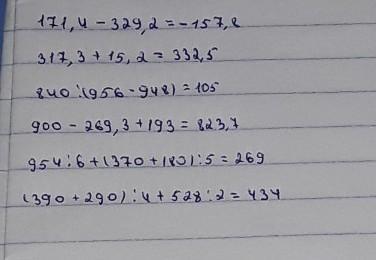 171,4 - 329,2 = -157,8
317,3 + 15,2 = 332,5
840 : (956 - 948) = 105
900 - 269,3 + 193 = 823,7
954 : 6 + (370 + 180) : 5 = 269
(390 + 290) : 4 + 528 : 2 = 434